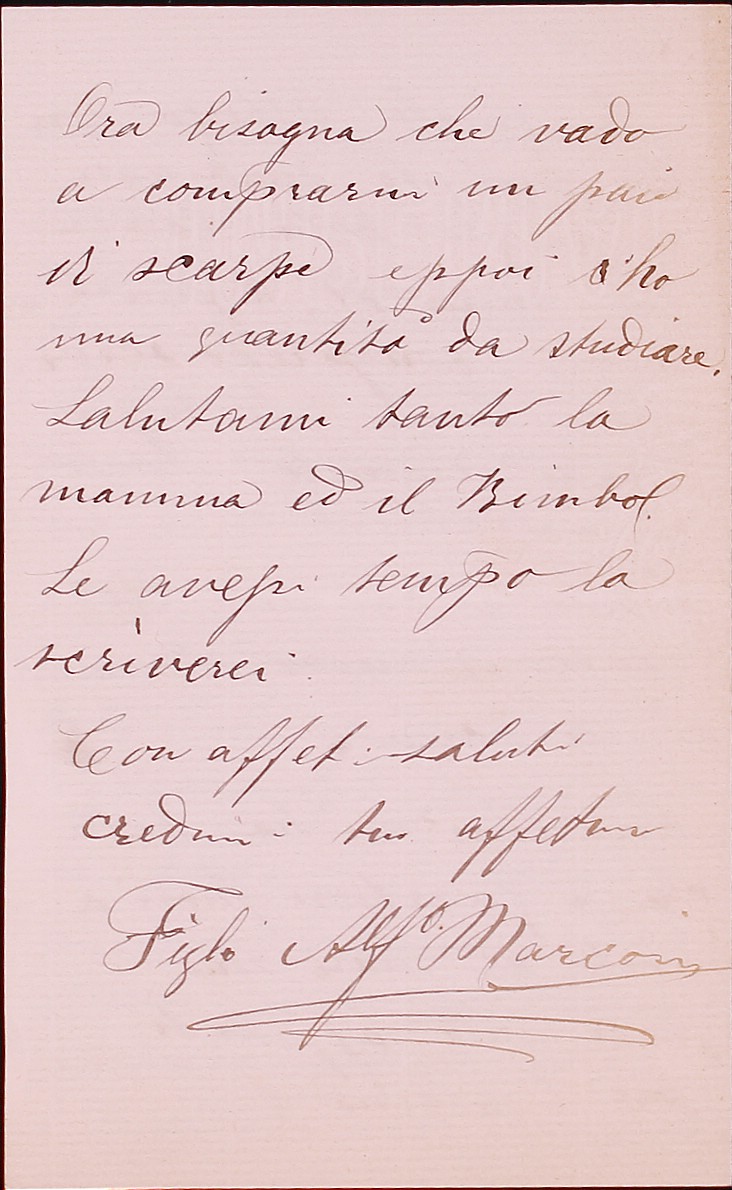 Ora bisogna che vado
a comprarmi un paio
di scarpe eppoi c'ho
una quantità da studiare.
Salutami tanto la
mamma ed il Bimbo.
Se avessi tempo la
scriverei.
Con affet. saluti
credimi tuo affetmo
Figlio Alfo. Marconi